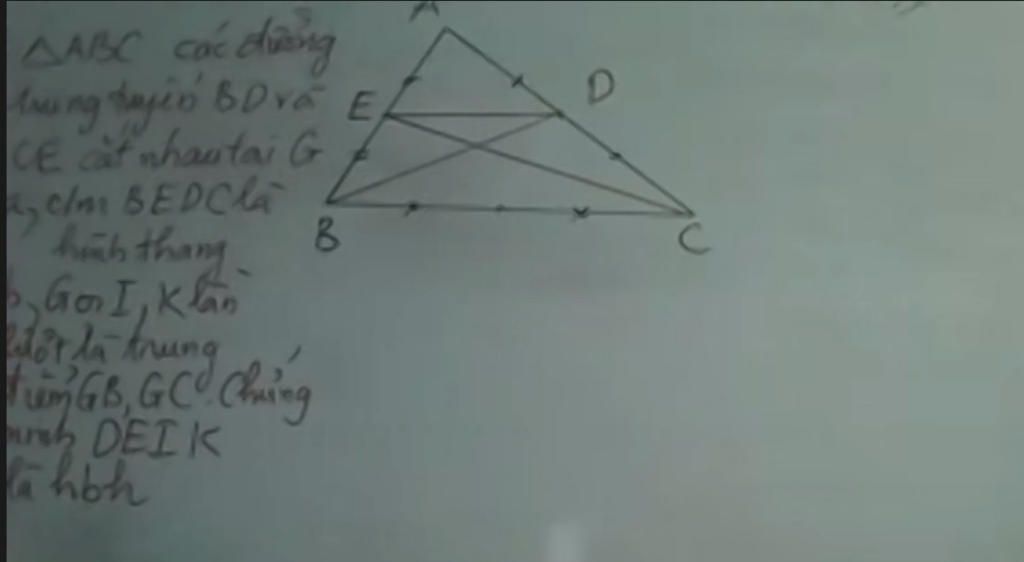 A
△ABC các đường
trung tuyến BD và
CE cắt nhau tại G
a, c/m BEDC là
hình thang
b, Gọi I, K lần
lượt là trung
điểm GB, GC. Chứng
minh DEIK
là hbh
E
D
B
C